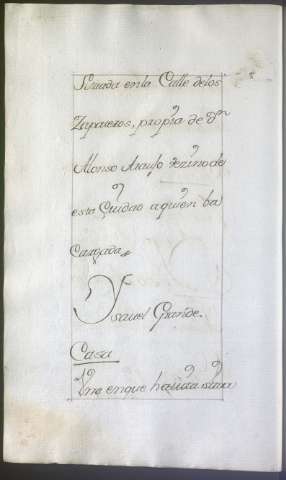 Situada en la Calle de los
Zapateros, propria de Dn
Alonso Araujo Vezino de
esta Ciudad a quien ba
Cargada
Ysavel Grande.
Casa
Una en que havita